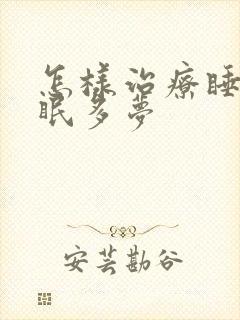 怎樣治療睡
眠多夢
安芸勘谷